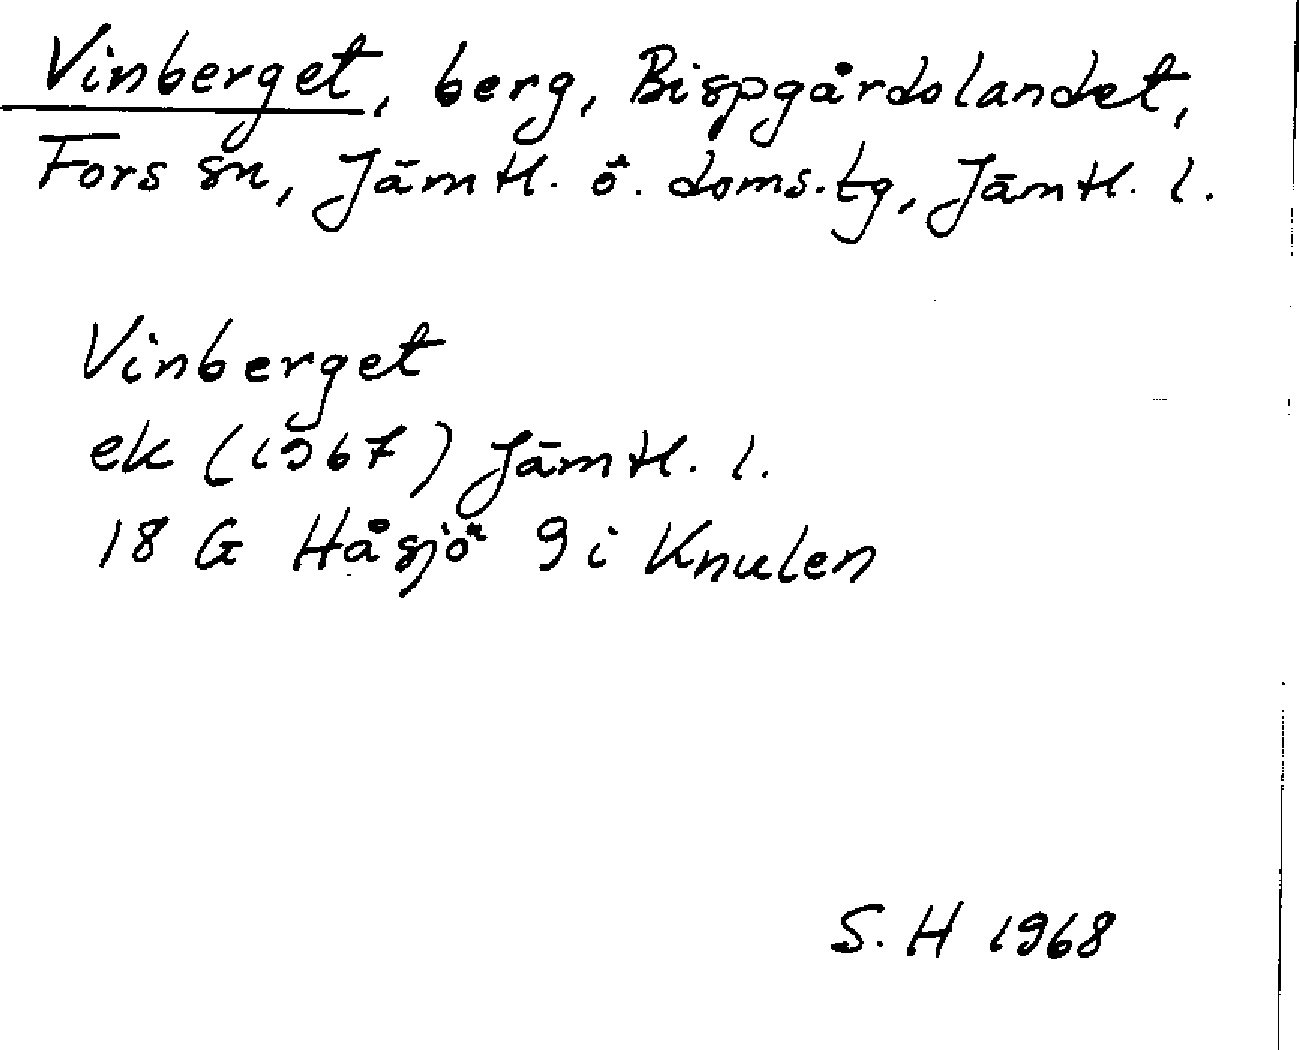 Vinberget, berg, Bispgårdslandet,
Fors sn, Jämtl. ö. doms.tg, Jämtl. l.
Vinberget
ek (1967) Jämtl. l.
18 G Håsjö 9 i Knulen
S. H 1968